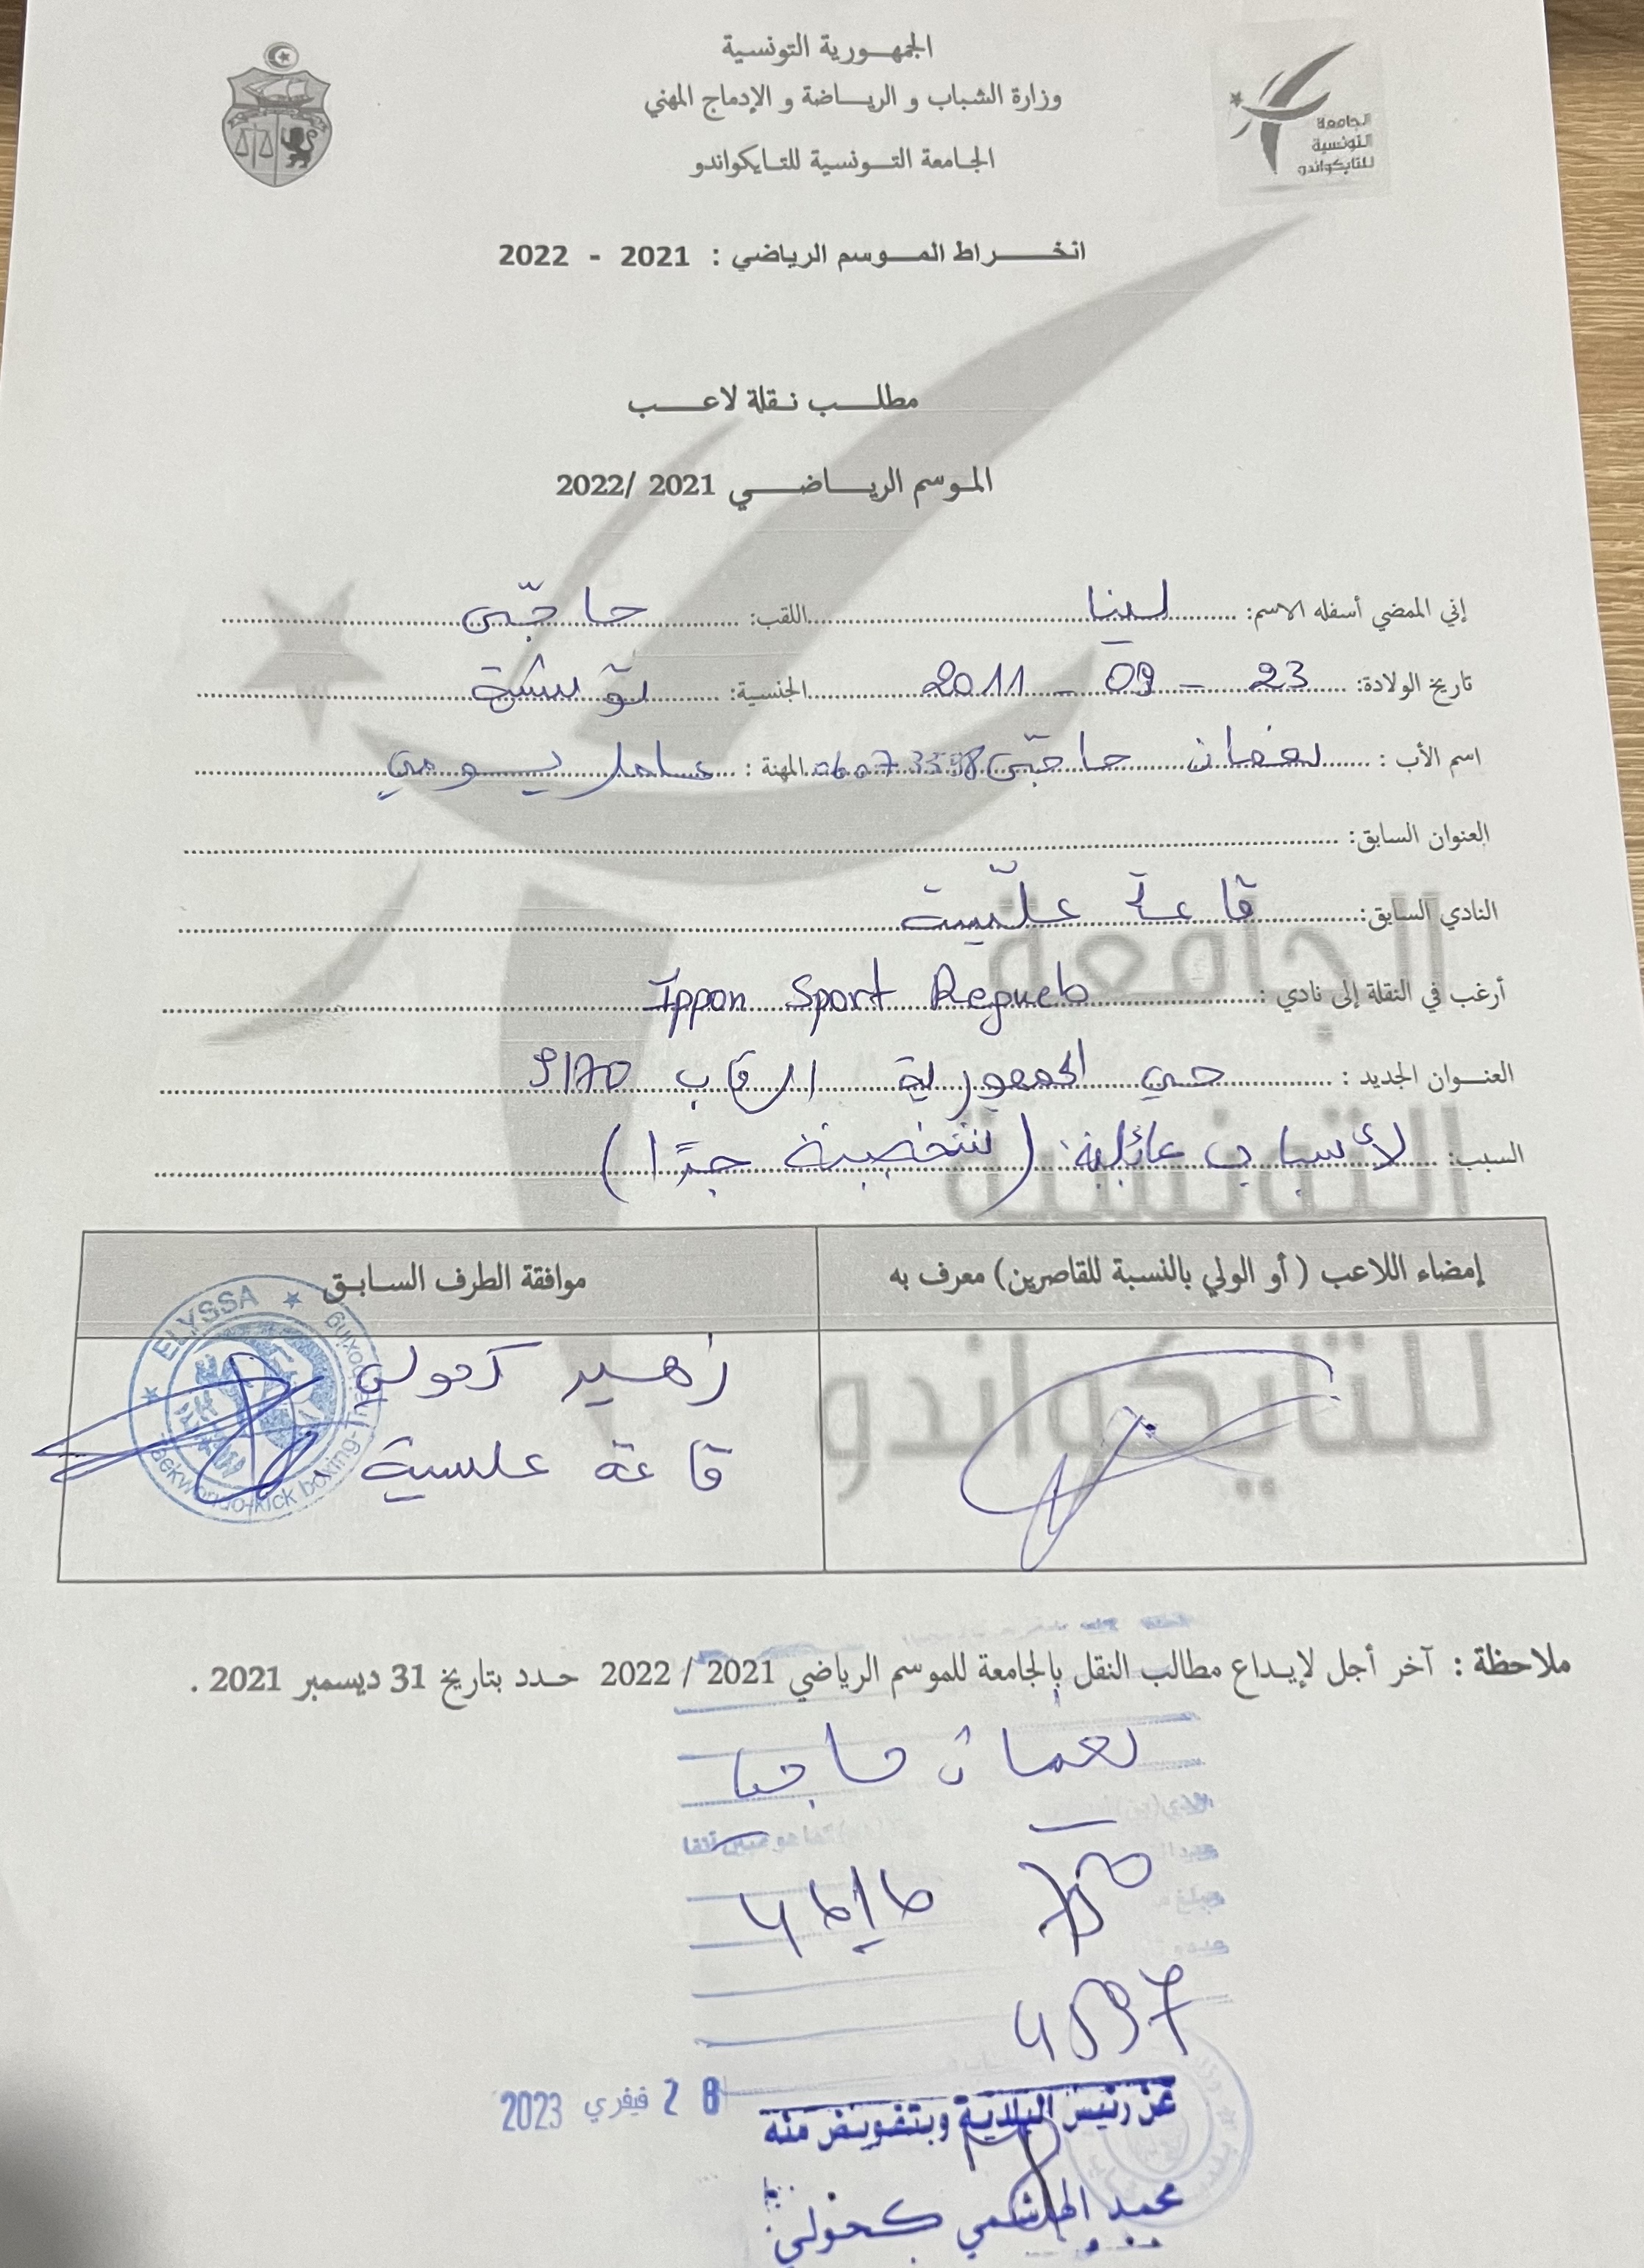 الجمهورية التونسية
وزارة الشباب و الرياضة و الإدماج المهني
الجامعة التونسية للتايكواندو
الجامعة
التونسية
للتايكواندو
انخراط الموسم الرياضي : 2021 - 2022
مطلب نقلة لاعب
الموسم الرياضي 2021 /2022
إني الممضي أسفله الاسم: لينا اللقب: حاجّي
تاريخ الولادة: 23 - 09 - 2011 الجنسية: تونسية
اسم الأب : نعمان حاجّي المهنة : عامل يومي
العنوان السابق:
النادي السابق: قاعة علّيسة
أرغب في النقلة إلى نادي : Ippon Sport Regueb
العنوان الجديد : حي الجمهورية الرقاب 9170
السبب: لأسباب عائلية (شخصية جدًا)
إمضاء اللاعب ( أو الولي بالنسبة للقاصرين) معرف به
موافقة الطرف السابق
زهير كحولي
قاعة عليسة
ELYSSA
ملاحظة : آخر أجل لإيداع مطالب النقل بالجامعة للموسم الرياضي 2021 / 2022 حدد بتاريخ 31 ديسمبر 2021 .
نعمان حاجي
4597
28 فيفري 2023
عن رئيس البلدية وبتفويض منه
محمد الهاشمي كحولي